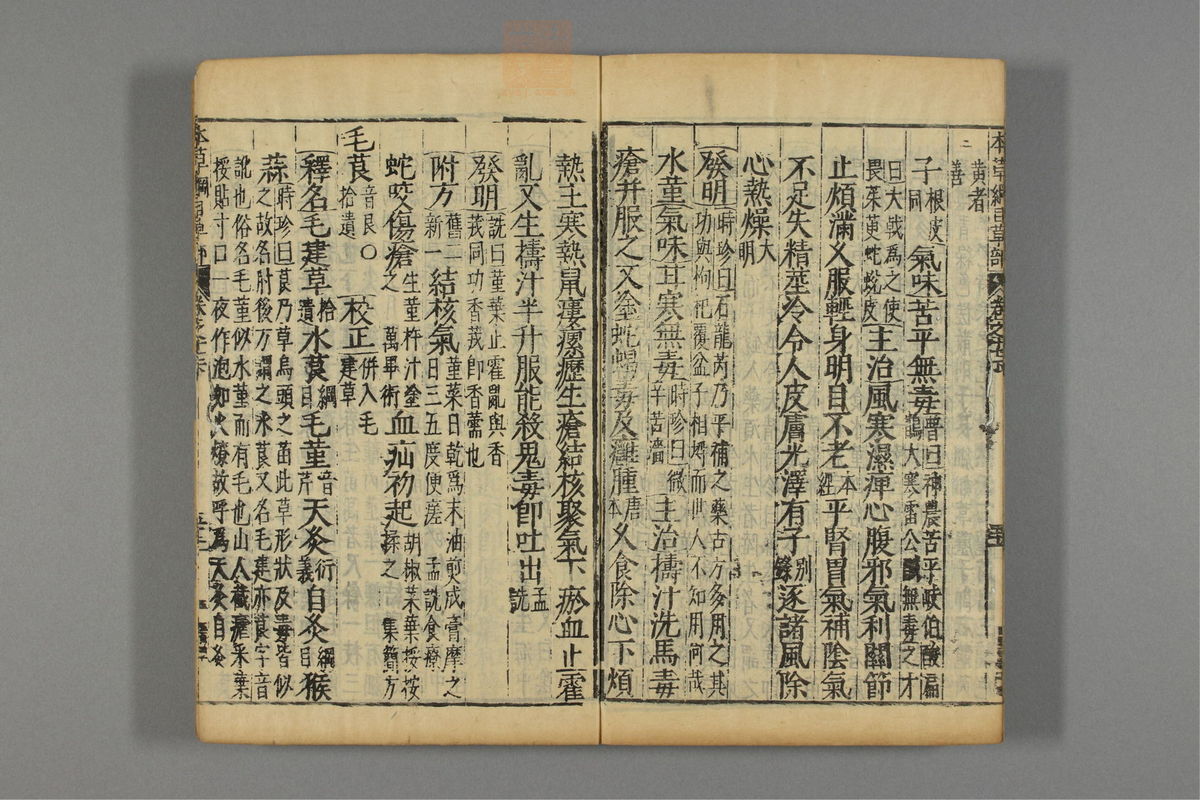 黄者
善
子根皮同氣味苦平無毒普曰神農苦平岐伯酸扁鵲大寒雷公鹹無毒之才
曰大戟為之使畏茱萸蛇蛻皮主治風寒濕痺心腹邪氣利關節
止煩滿久服輕身明目不老本經平腎胃氣補陰氣
不足失精莖冷令人皮膚光澤有子別錄逐諸風除
心熱燥大明
發明時珍曰石龍芮乃平補之藥古方多用之其功與枸杞覆盆子相埒而世人不知用何哉
水堇氣味甘寒無毒時珍曰微辛苦濇主治擣汁洗馬毒
瘡并服之又塗蛇蝎毒及癰腫唐本久食除心下煩
熱主寒熱鼠瘻瘰癧生瘡結核聚氣下瘀血止霍
亂又生擣汁半升服能殺鬼毒即吐出孟詵
發明詵曰堇葉止霍亂與香茙同功香茙即香薷也
附方舊二新一結核氣堇菜日乾為末油煎成膏摩之日三五度便瘥 孟詵食療
蛇咬傷瘡生堇杵汁塗之 萬畢術血疝初起胡椒菜葉挼按揉之 集簡方
毛茛音艮○拾遺校正併入毛建草
釋名毛建草拾遺水茛綱目毛堇音芹天灸衍義自灸綱目猴
蒜時珍曰茛乃草烏頭之苗此草形狀及毒皆似之故名肘後方謂之水茛又名毛建亦茛字音
訛也俗名毛堇似水堇而有毛也山人截瘧采葉挼貼寸口一夜作泡如火燎故呼為天灸自灸